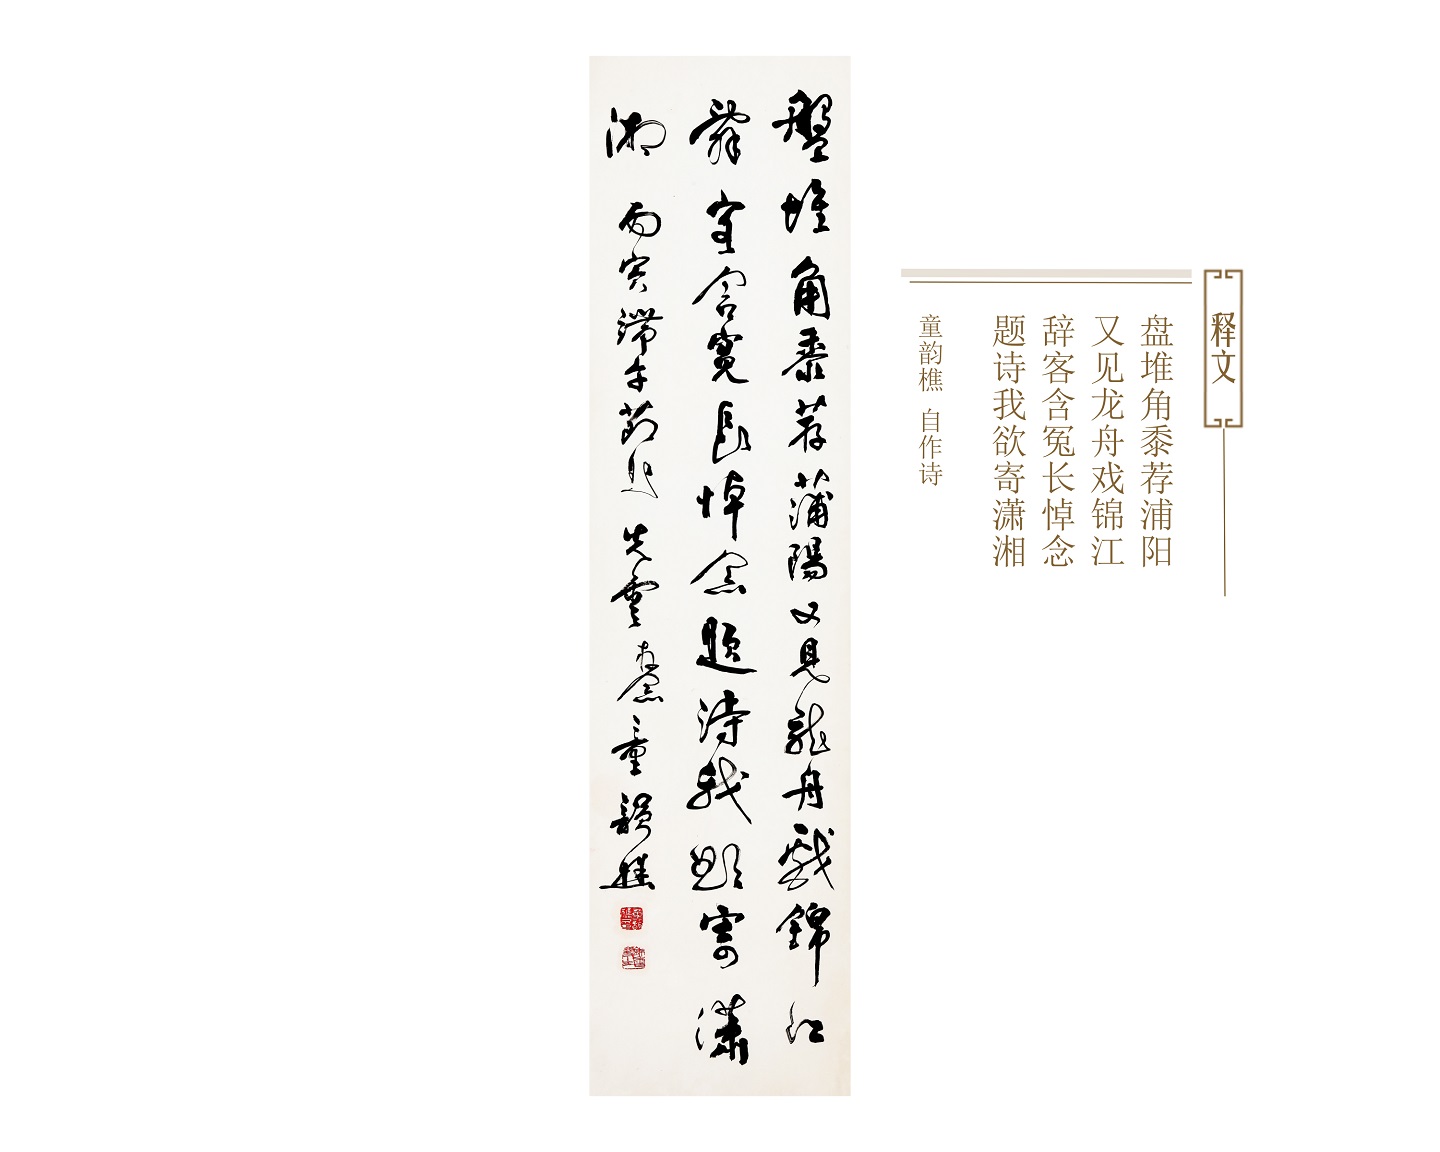 释文
盘堆角黍荐浦阳
又见龙舟戏锦江
辞客含冤长悼念
题诗我欲寄潇湘
童韵樵 自作诗
盤堆角黍荐蒲陽又見龍舟戲錦江
辭客含冤長悼念題詩我欲寄瀟
湘 丙寅端午節 先雲存念 童韻樵